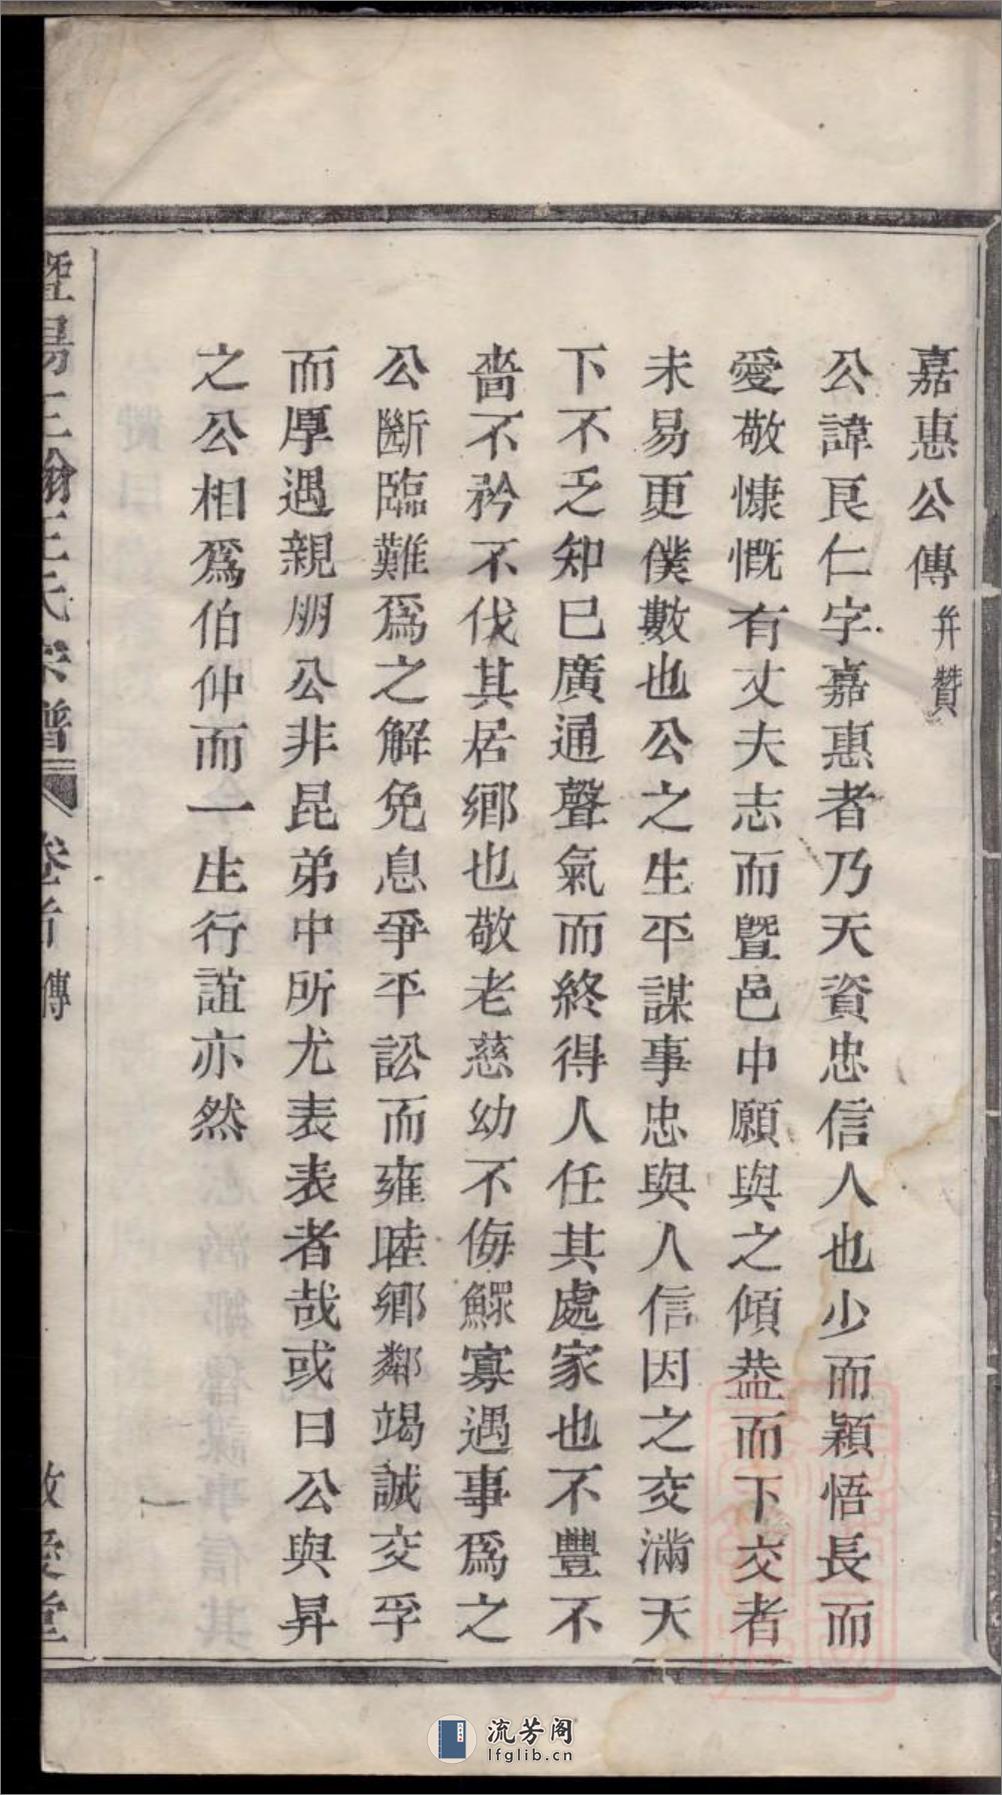 嘉惠公傳 并贊
公諱良仁字嘉惠者乃天資忠信人也少而穎悟長而
愛敬慷慨有丈夫志而暨邑中願與之傾葢而下交者
未易更僕數也公之生平謀事忠與人信因之交滿天
下不乏知巳廣通聲氣而終得人任其處家也不豐不
嗇不矜不伐其居鄉也敬老慈幼不侮鰥寡遇事爲之
公斷臨難爲之解免息爭平訟而雍睦鄉鄰竭誠交孚
而厚遇親朋公非昆弟中所尤表表者哉或曰公與昇
之公相爲伯仲而一生行誼亦然
暨陽王翰王氏宗譜 卷首 傳 敬愛堂
流芳阁
lfglib.cn